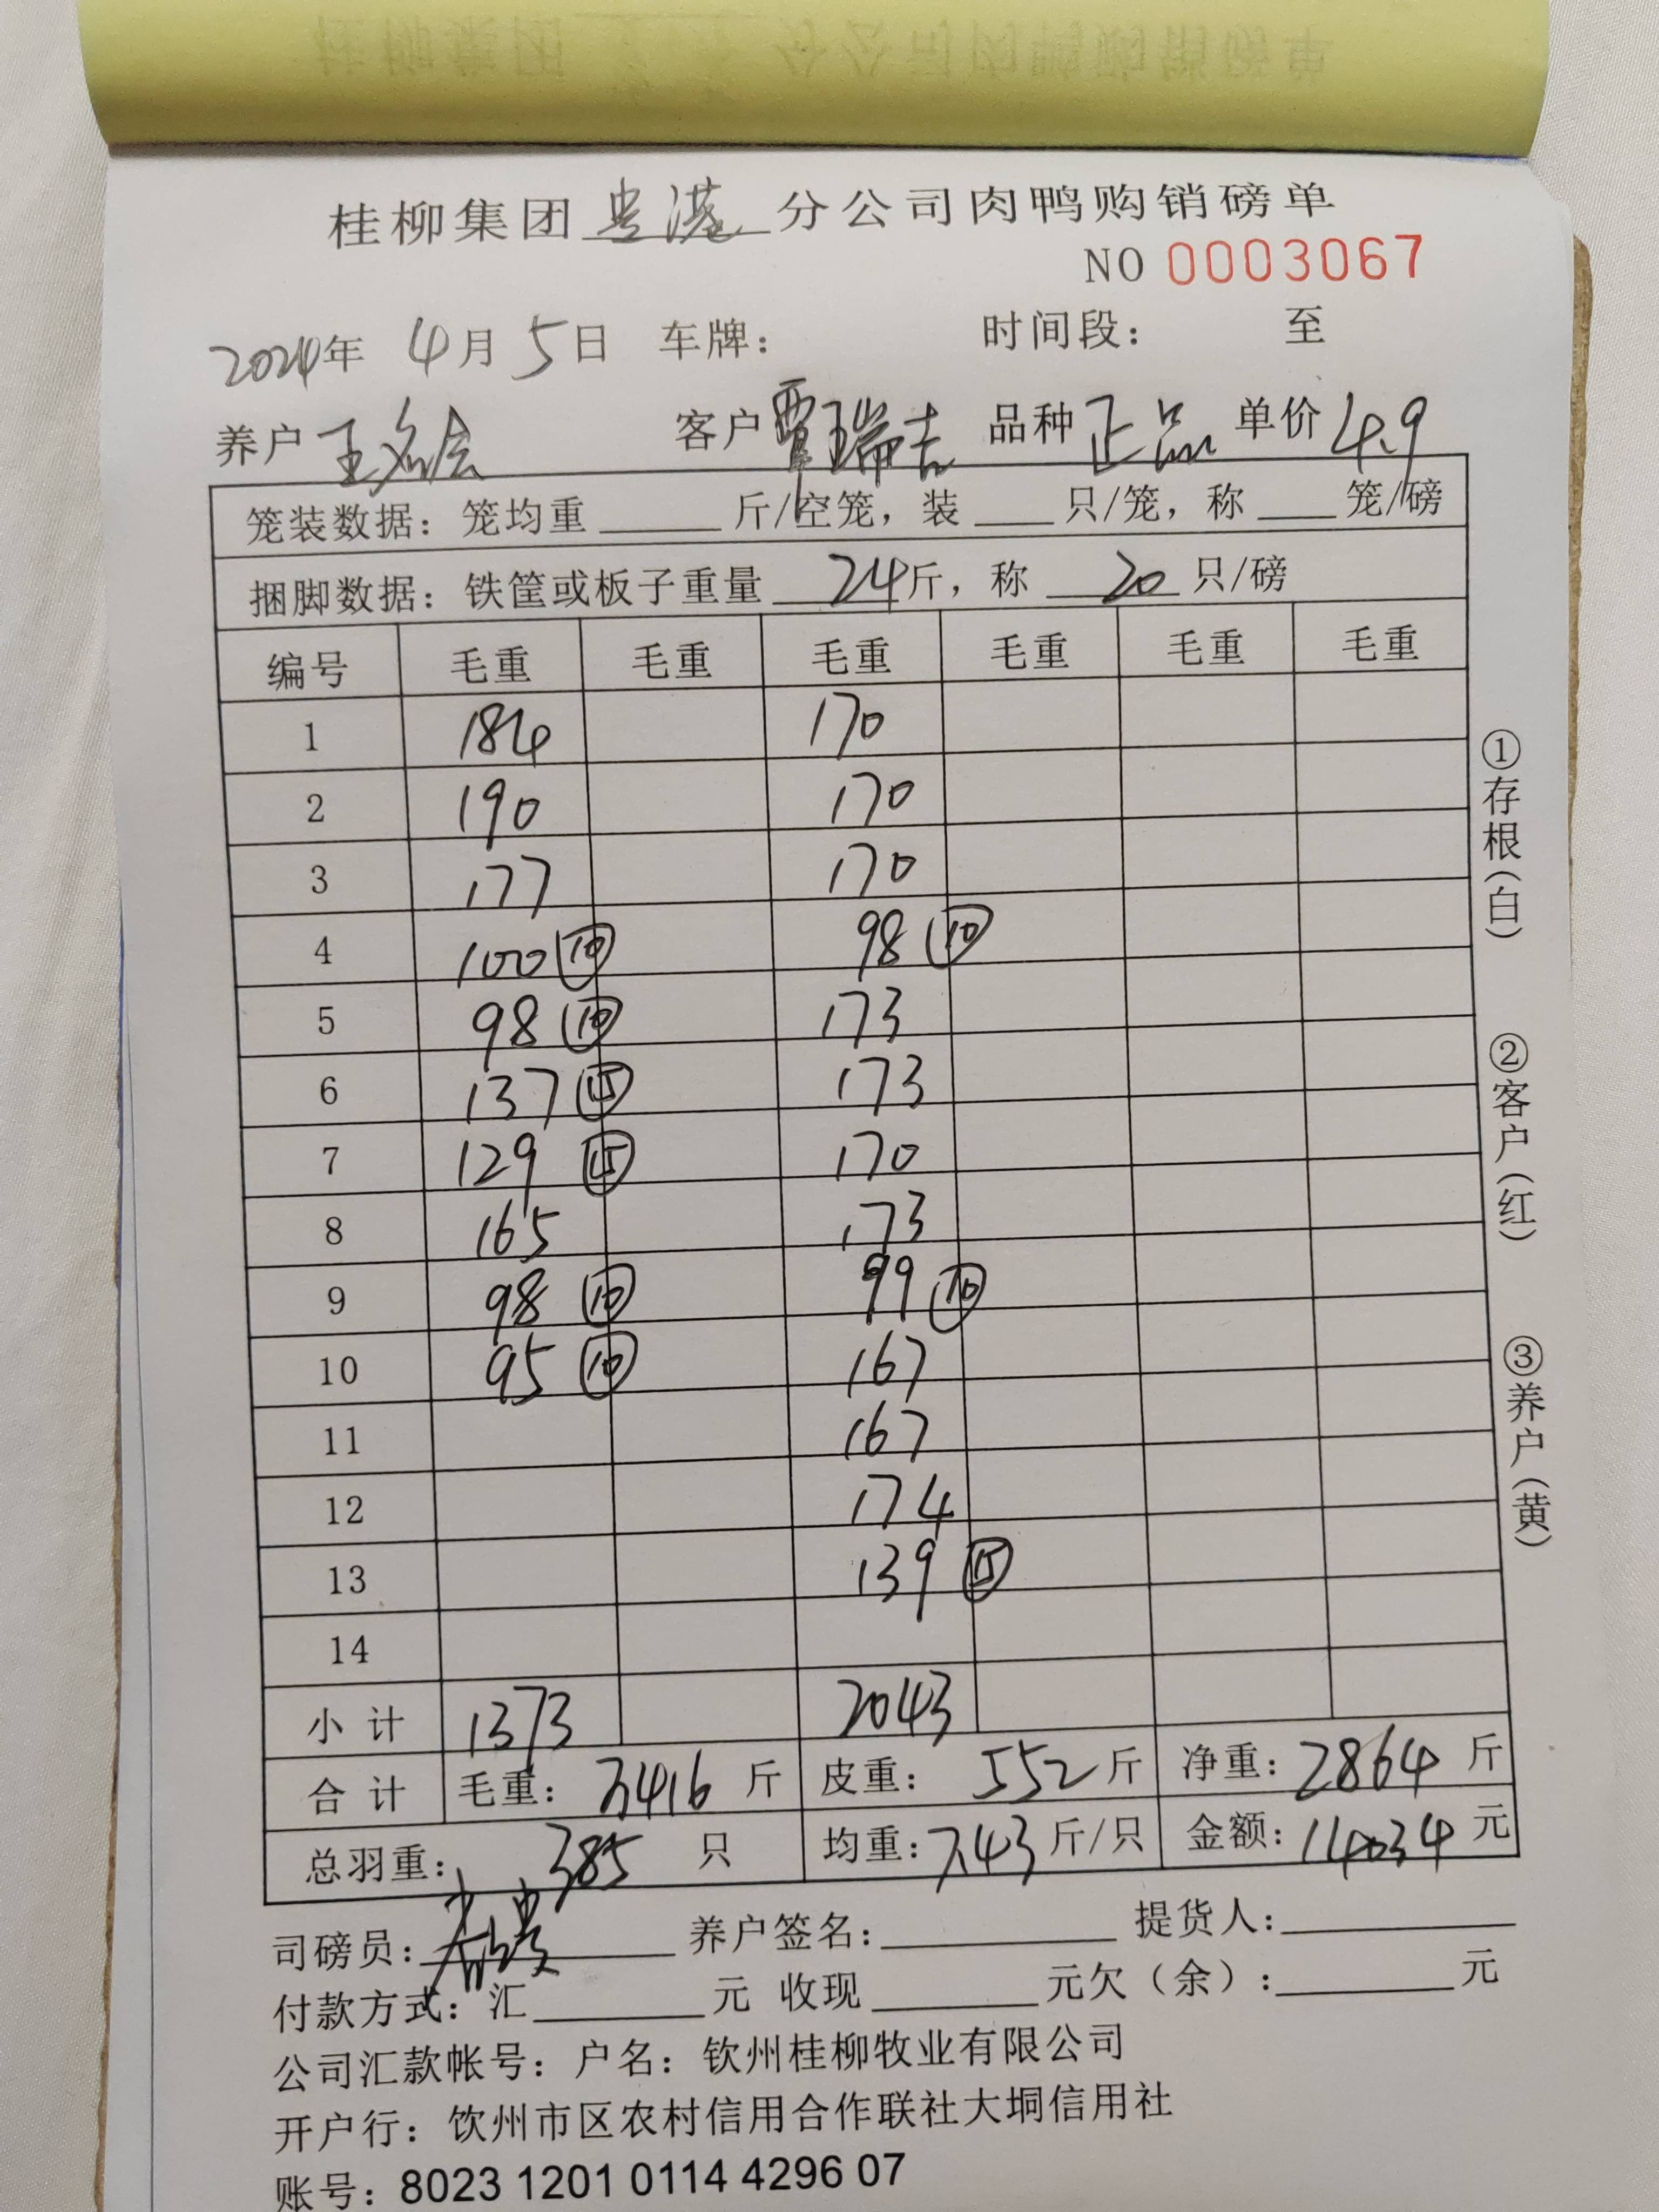 桂柳集团贵港分公司肉鸭购销磅单
NO 0003067
2024年 4月 5日 车牌： 时间段： 至
养户 王名会 客户 覃瑞吉 品种 正品 单价 4.9
笼装数据：笼均重 斤/空笼，装 只/笼，称 笼/磅
捆脚数据：铁筐或板子重量 24斤，称 20 只/磅
编号 毛重 毛重 毛重 毛重 毛重 毛重
1 184 170
2 190 170
3 177 170
4 100 ⑩ 98 ⑩
5 98 ⑩ 173
6 137 ⑮ 173
7 129 ⑮ 170
8 165 173
9 98 ⑩ 99 ⑩
10 95 ⑩ 167
11 167
12 174
13 139 ⑮
14
小计 1373 2043
合计 毛重：3416 斤 皮重：552斤 净重：2864 斤
总羽重：385 只 均重：7.43斤/只 金额：14034 元
司磅员： 养户签名： 提货人：
付款方式：汇 元 收现 元欠（余）： 元
公司汇款帐号：户名：钦州桂柳牧业有限公司
开户行：饮州市区农村信用合作联社大垌信用社
账号：8023 1201 0114 4296 07
①存根（白）
②客户（红）
③养户（黄）